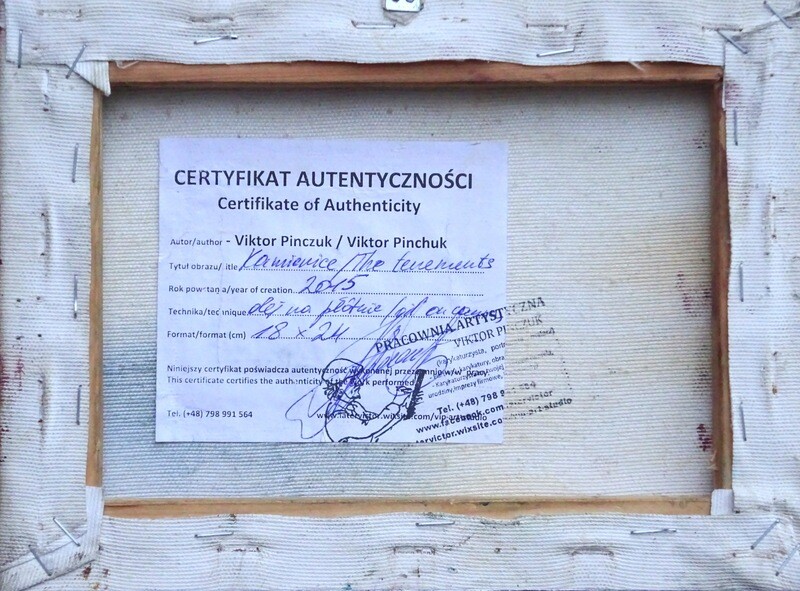 CERTYFIKAT AUTENTYCZNOŚCI
Certifikate of Authenticity
Autor/author - Viktor Pinczuk / Viktor Pinchuk
Tytuł obrazu/ title Kamienice/The tenements
Rok powstania/year of creation 2015
Technika/technique olej na płótnie/oil on canvas
Format/format (cm) 18 x 24
PRACOWNIA ARTYSTYCZNA
VIKTOR PINCZUK
Niniejszy certyfikat poświadcza autentyczność wykonanej przezemnie w/w Pracy
This certificate certifies the authenticity of the work performed
Tel. (+48) 798 991 564
www.latervictor.wixsite.com/vip-art-studio
Tel. (+48) 798 9
www.facebook.com
latervictor.wixsite.co